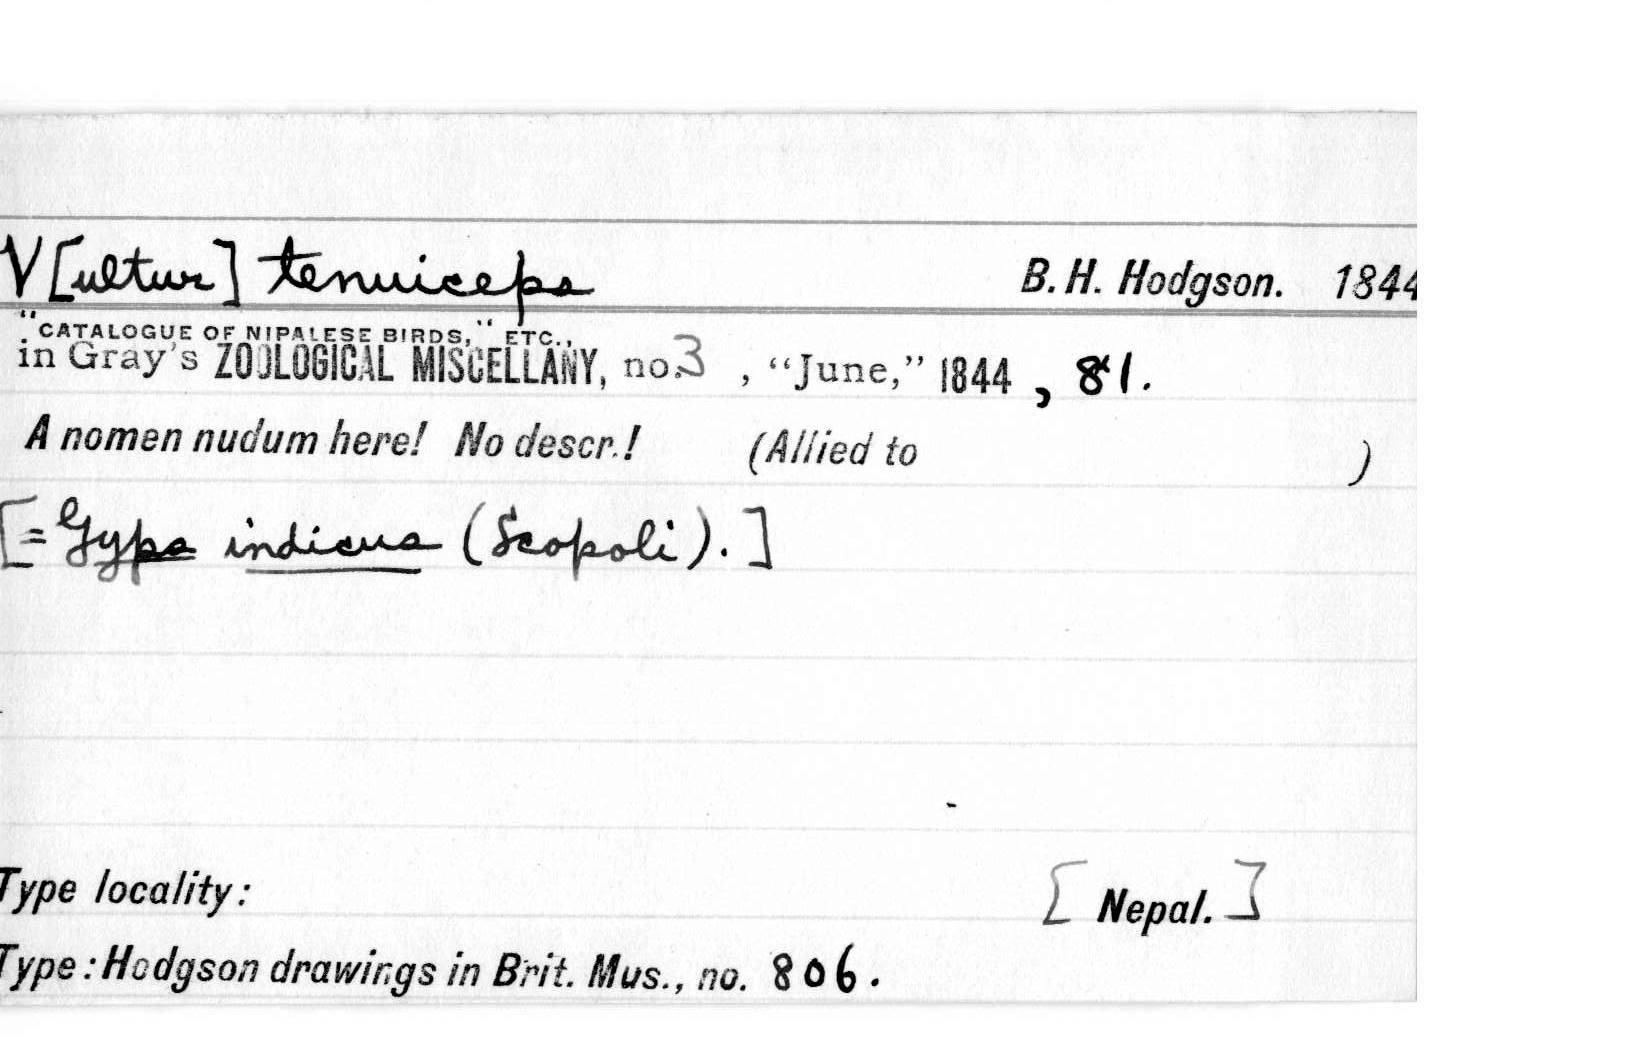 V[ultur] tenuiceps B. H. Hodgson. 1844
"CATALOGUE OF NIPALESE BIRDS," ETC.,
in Gray's ZOOLOGICAL MISCELLANY, no. 3 , "June," 1844 , 81.
A nomen nudum here! No descr.! (Allied to )
[= Gyps indicus (Scopoli).]
Type locality: [Nepal.]
Type: Hodgson drawings in Brit. Mus., no. 806.